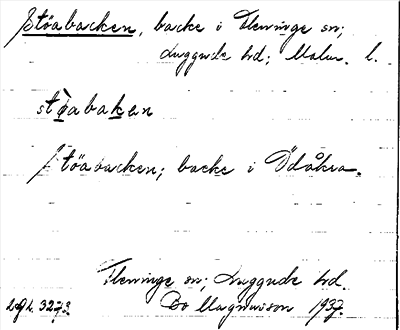 Stöabacken, backe i Fleninge sn;
Luggude hd; Malm. l.
stòabaken
Stöabacken; backe i Ödåkra.
Fleninge sn; Luggude hd
Bo Magnusson 1937.